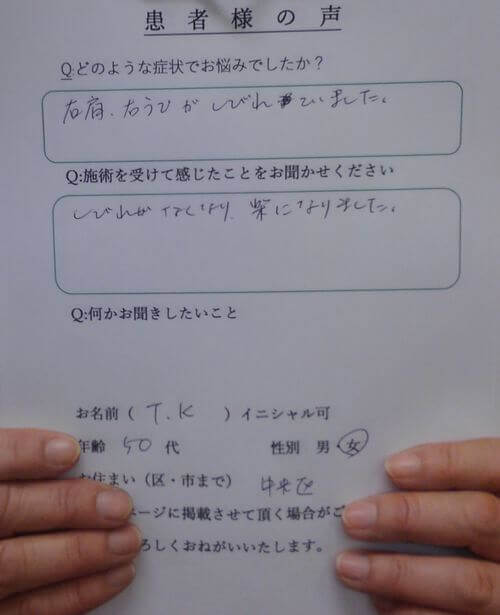 患者様の声
Q:どのような症状でお悩みでしたか？
右肩、右うでがしびれていました。
Q:施術を受けて感じたことをお聞かせください
しびれがなくなり、楽になりました。
Q:何かお聞きしたいこと
お名前（ T.K ）イニシャル可
年齢 50 代 性別 男・女
お住まい（区・市まで） 中央区
ページに掲載させて頂く場合がご
ろしくおねがいいたします。